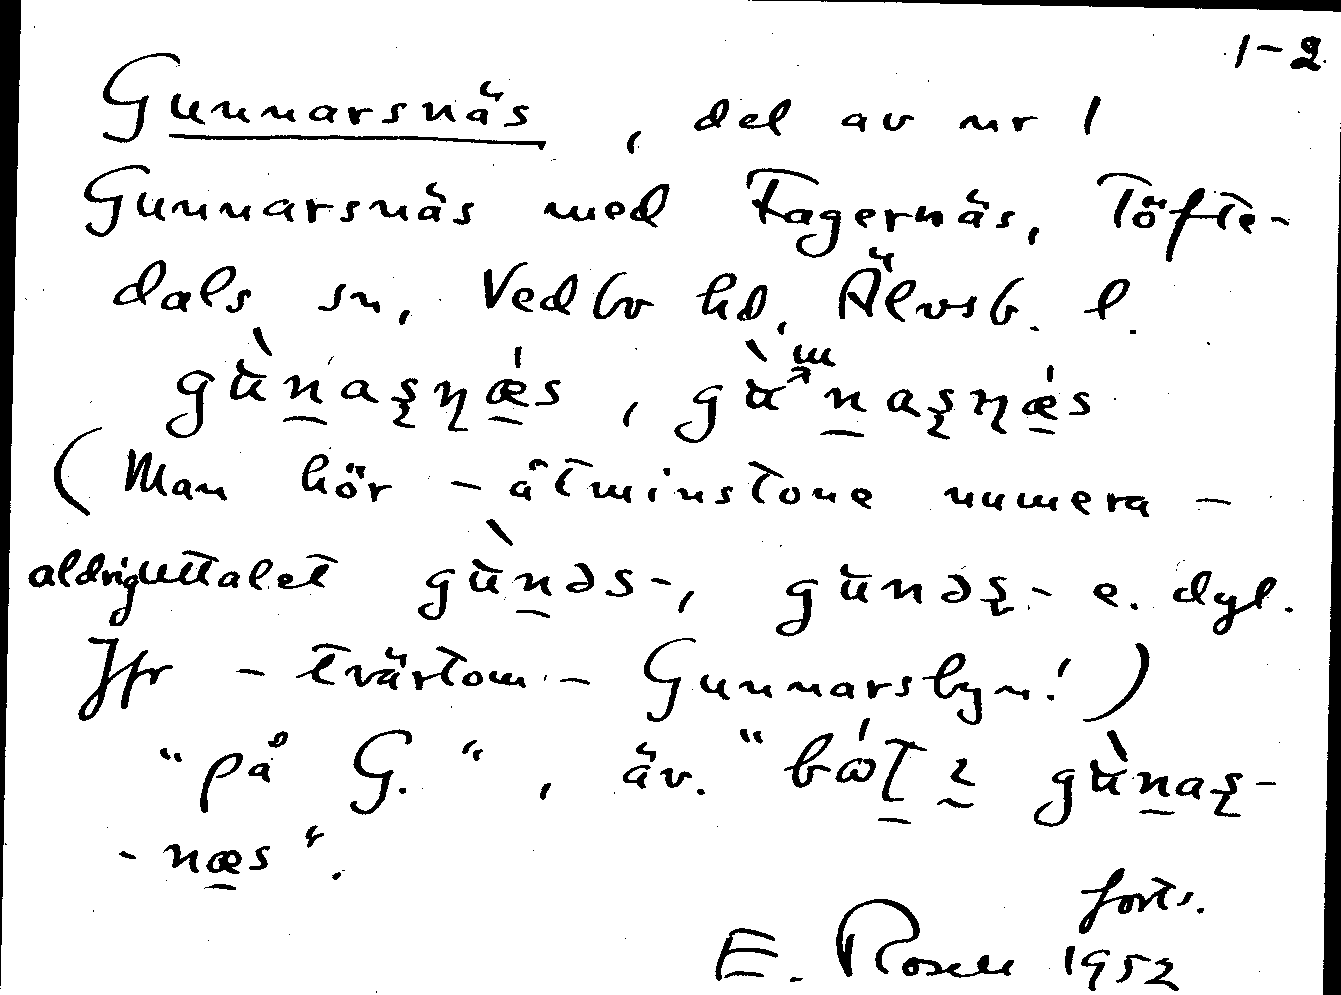 1-2
Gunnarsnäs, del av nr 1
Gunnarsnäs med Fagernäs, Töfte-
dals sn, Vedbo hd, Älvsb. l.
(Man hör - åtminstone numera -
aldrig uttalet gùnəs-, gunəș- e. dyl.
Jfr - tvärtom - Gunnarsbyn!)
"på G.", äv. "
-næs".
forts.
E. Rosell 1952